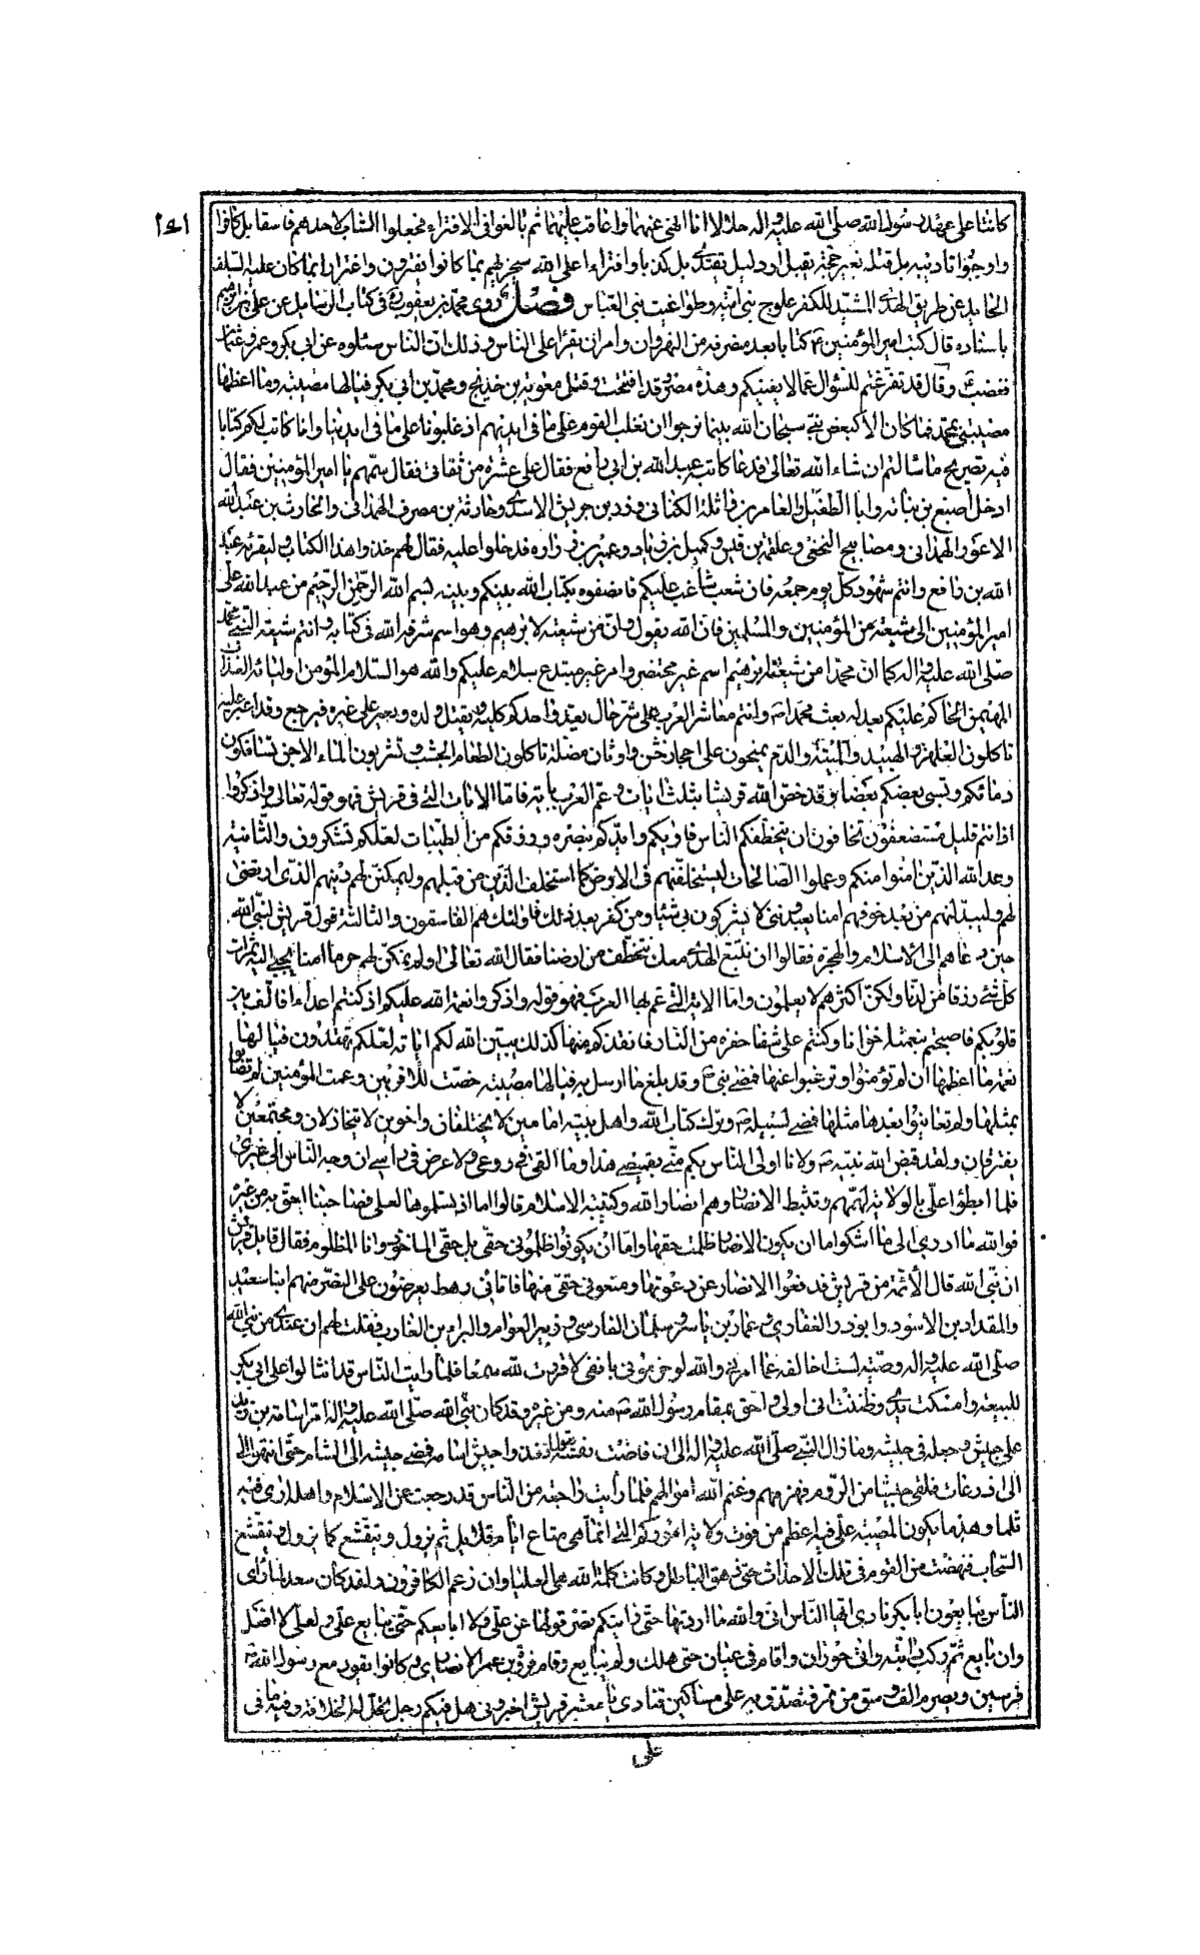 كانتا على عهد رسول الله صلى الله عليه وآله حلالا انا انهى عنهما واعاقب عليهما ثم بالغوا فى الافتراء فجعلوا الشاب لاحدهم فاسقا بل كافرا
واوجبوا تاديبه بل قتله بغير حجة يقبل او دليل يقتدى بل كذبا وافتراءا على الله سيجزيهم بما كانوا يفترون واغترارا بما كان عليه السلف
الحايد عن طريق الهدى المشيد للكفر علوج بنى امية وطواغيت بنى العباس فصل روى محمد بن يعقوب فى كتاب الرسايل عن على بن ابرهيم
باسناده قال كتب امير المؤمنين ع كتابا بعد منصرفه من النهروان وامر ان يقرأ على الناس وذلك ان الناس سئلوه عن ابى بكر وعمر وعثمان
فغضب ع وقال قد تفرغتم للسؤال عما لا يعنيكم وهذه مصر قد افتتحت وقتل معوية بن خديج ومحمد بن ابى بكر فيالها مصيبة وما اعظمها
مصيبتى بمحمد فما كان الا كبعض بنى سبحان الله بينما نرجوا ان نغلب القوم على ما فى ايديهم اذ غلبونا على ما فى ايدينا وانا كاتب لكم كتابا
فيه تصريح ما سالتم ان شاء الله تعالى فدعا كاتبه عبيد الله بن ابى رافع فقال على عشرة من ثقاتى فقال سمهم يا امير المؤمنين فقال
ادخل اصبغ بن نباته وابا الطفيل والعامر بن واثلة الكنانى وزر بن حريش الاسدى وحارثة بن مصرف الهمدانى والحارث بن عبد الله
الاعور الهمدانى ومصابيح النخعى وعلقمة بن قيس وكميل بن زياد وعمير بن زراره فدخلوا عليه فقال لهم خذوا هذا الكتاب وليقرئه عبيد
الله بن رافع وانتم شهود كل يوم جمعه فان شغب شاغب عليكم فانصفوه بكتاب الله بينكم وبينه بسم الله الرحمن الرحيم من عبد الله على
امير المؤمنين الى شيعته من المؤمنين والمسلمين فان الله يقول وان من شيعته لابرهيم وهو اسم شرفه الله فى كتابه وانتم شيعة النبى محمد
صلى الله عليه واله كما ان محمدا من شيعة ابرهيم اسم غير مختصر وامر غير مبتدع سلام عليكم والله هو السلام المؤمن اوليائه العذاب
المهيمن الحاكم عليكم بعدله بعث محمدا ص وانتم معاشر العرب على شر حال يغذو احدكم كلبه ويقتل ولده ويغير على غيره فيرجع وقد اغير عليه
تاكلون العلهز والهبيد والميتة والدم يمنحون على احجار خشن واوثان مضلة تاكلون الطعام الجشب وتشربون الماء الاجن تسافكون
دمائكم ويسبى بعضكم بعضا وقد خص الله قريشا بثلث ايات وعم العرب باية فاما الايات التى فى قريش فهو قوله تعالى واذكروا
اذ انتم قليل مستضعفون تخافون ان يتخطفكم الناس فاويكم وايدكم بنصره ورزقكم من الطيبات لعلكم تشكرون والثانية
وعد الله الذين امنوا منكم وعملوا الصالحات ليستخلفنهم فى الارض كما استخلف الذين من قبلهم وليمكنن لهم دينهم الذى ارتضى
لهم وليبدلنهم من بعد خوفهم امنا يعبدوننى لا يشركون بى شيئا ومن كفر بعد ذلك فاولئك هم الفاسقون والثالثة قول قريش لنبى الله
حين دعاهم الى الاسلام والهجرة فقالوا ان نتبع الهدى معك نتخطف من ارضنا فقال الله تعالى اولم نمكن لهم حرما امنا يجبى اليه ثمرات
كل شئ رزقا من لدنا ولكن اكثرهم لا يعلمون واما الاية التى عم بها العرب فهو قوله واذكروا نعمة الله عليكم اذ كنتم اعداء فالف بين
قلوبكم فاصبحتم بنعمته اخوانا وكنتم على شفا حفرة من النار فانقذكم منها كذلك يبين الله لكم اياته لعلكم تهتدون فيالها
نعمة ما اعظمها ان لم تؤمنوا وترغبوا عنها فمضى بنى ع وقد بلغ ما ارسل به فيالها مصيبة خصت للاقربين وعمت المؤمنين لم تصابوا
بمثلها ولم تعاينوا بعدها مثلها فمضى لسبيله ص وترك كتاب الله واهل بيته امامين لا يختلفان واخوين لا يتخاذلان ومجتمعين لا
يفترقان ولقد قبض الله نبيه ص ولانا اولى الناس بكم منى بقميصى هذا وما القى فى روعى ولا عرض فى راسى ان وجه الناس الى غيرى
فلما ابطؤا على بالولاية لهممهم وتثبط الانصار وهم انصار الله وكتيبة الاسلام قالوا اما اذ لم تسلموها لعلى فصاحبنا احق بها من غيره
فوالله ما ادرى الى ما اشكوا ما ان يكون الانصار ظلمت حقها واما ان يكونوا ظلمونى حقى بل حقى الماخوذ وانا المظلوم فقال قايل قريش
ان نبى الله قال الائمة من قريش فدفعوا الانصار عن دعوتها ومنعونى حقى منها فاتانى رهط يعرضون على النصر منهم ابنا سعيد
والمقداد بن الاسود وابوذر الغفارى وعمار بن ياسر وسلمان الفارسى وزبير العوام والبراء بن العازب فقلت لهم ان عندى من نبى الله
صلى الله عليه واله وصية لست اخالفه عما امرنى والله لو خزمونى بانفى لاقررت لله سمعا فلما رايت الناس قد انثالوا على ابى بكر
للبيعة وامسكت يدى وظننت انى اولى واحق بمقام رسول الله ص منه ومن غيره وقد كان نبى الله صلى الله عليه واله امر اسامة بن زيد
على جيش وجعله فى جيشه وما زال النبى صلى الله عليه واله الى ان فاضت نفسه يقول انفذوا جيش اسامه فمضى جيشه الى الشام حتى انتهوا الى
الى اذرعات فلقى جيشا من الروم فهزمهم وغنم الله اموالهم فلما رأيت راجعة من الناس قد رجعت عن الاسلام واهل ارى فيه
ثلما وهدما يكون المصيبة على فيه اعظم من فوت ولاية اموركم التى انما هى متاع ايام قلايل ثم يزول ويتقشع كما يزول ويتقشع
السحاب فنهضت من القوم فى تلك الاحداث حتى زهق الباطل وكانت كلمة الله هى العليا وان زعم الكافرون ولقد كان سعد لما راى
الناس يبايعون ابا بكر نادى ايها الناس انى والله ما اردتها حتى رايتكم تصرفونها عن على ولا ابايعكم حتى يبايع على ولعلى لا افعل
وان بايع ثم ركب دابته واتى حوران واقام فى عنان حتى هلك ولم يبايع وقام فروة بن عمر الانصارى وكانوا يقود مع رسول الله ص
فرسين ويصرم الف وسق من تمر فتصدق به على مساكين فنادى يا معشر قريش اخبرونى هل فيكم رجل تحل له الخلافة وفيه ما فى
على